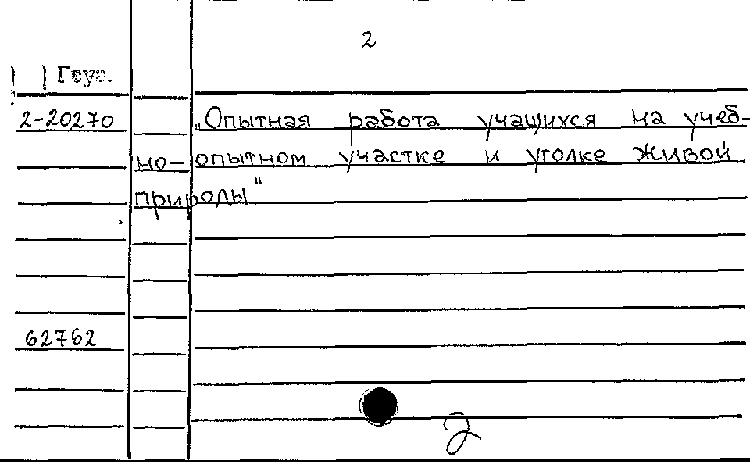 2
2-20270 „Опытная работа учащихся на учеб-
но-опытном участке и уголке живой
природы"
62762
2